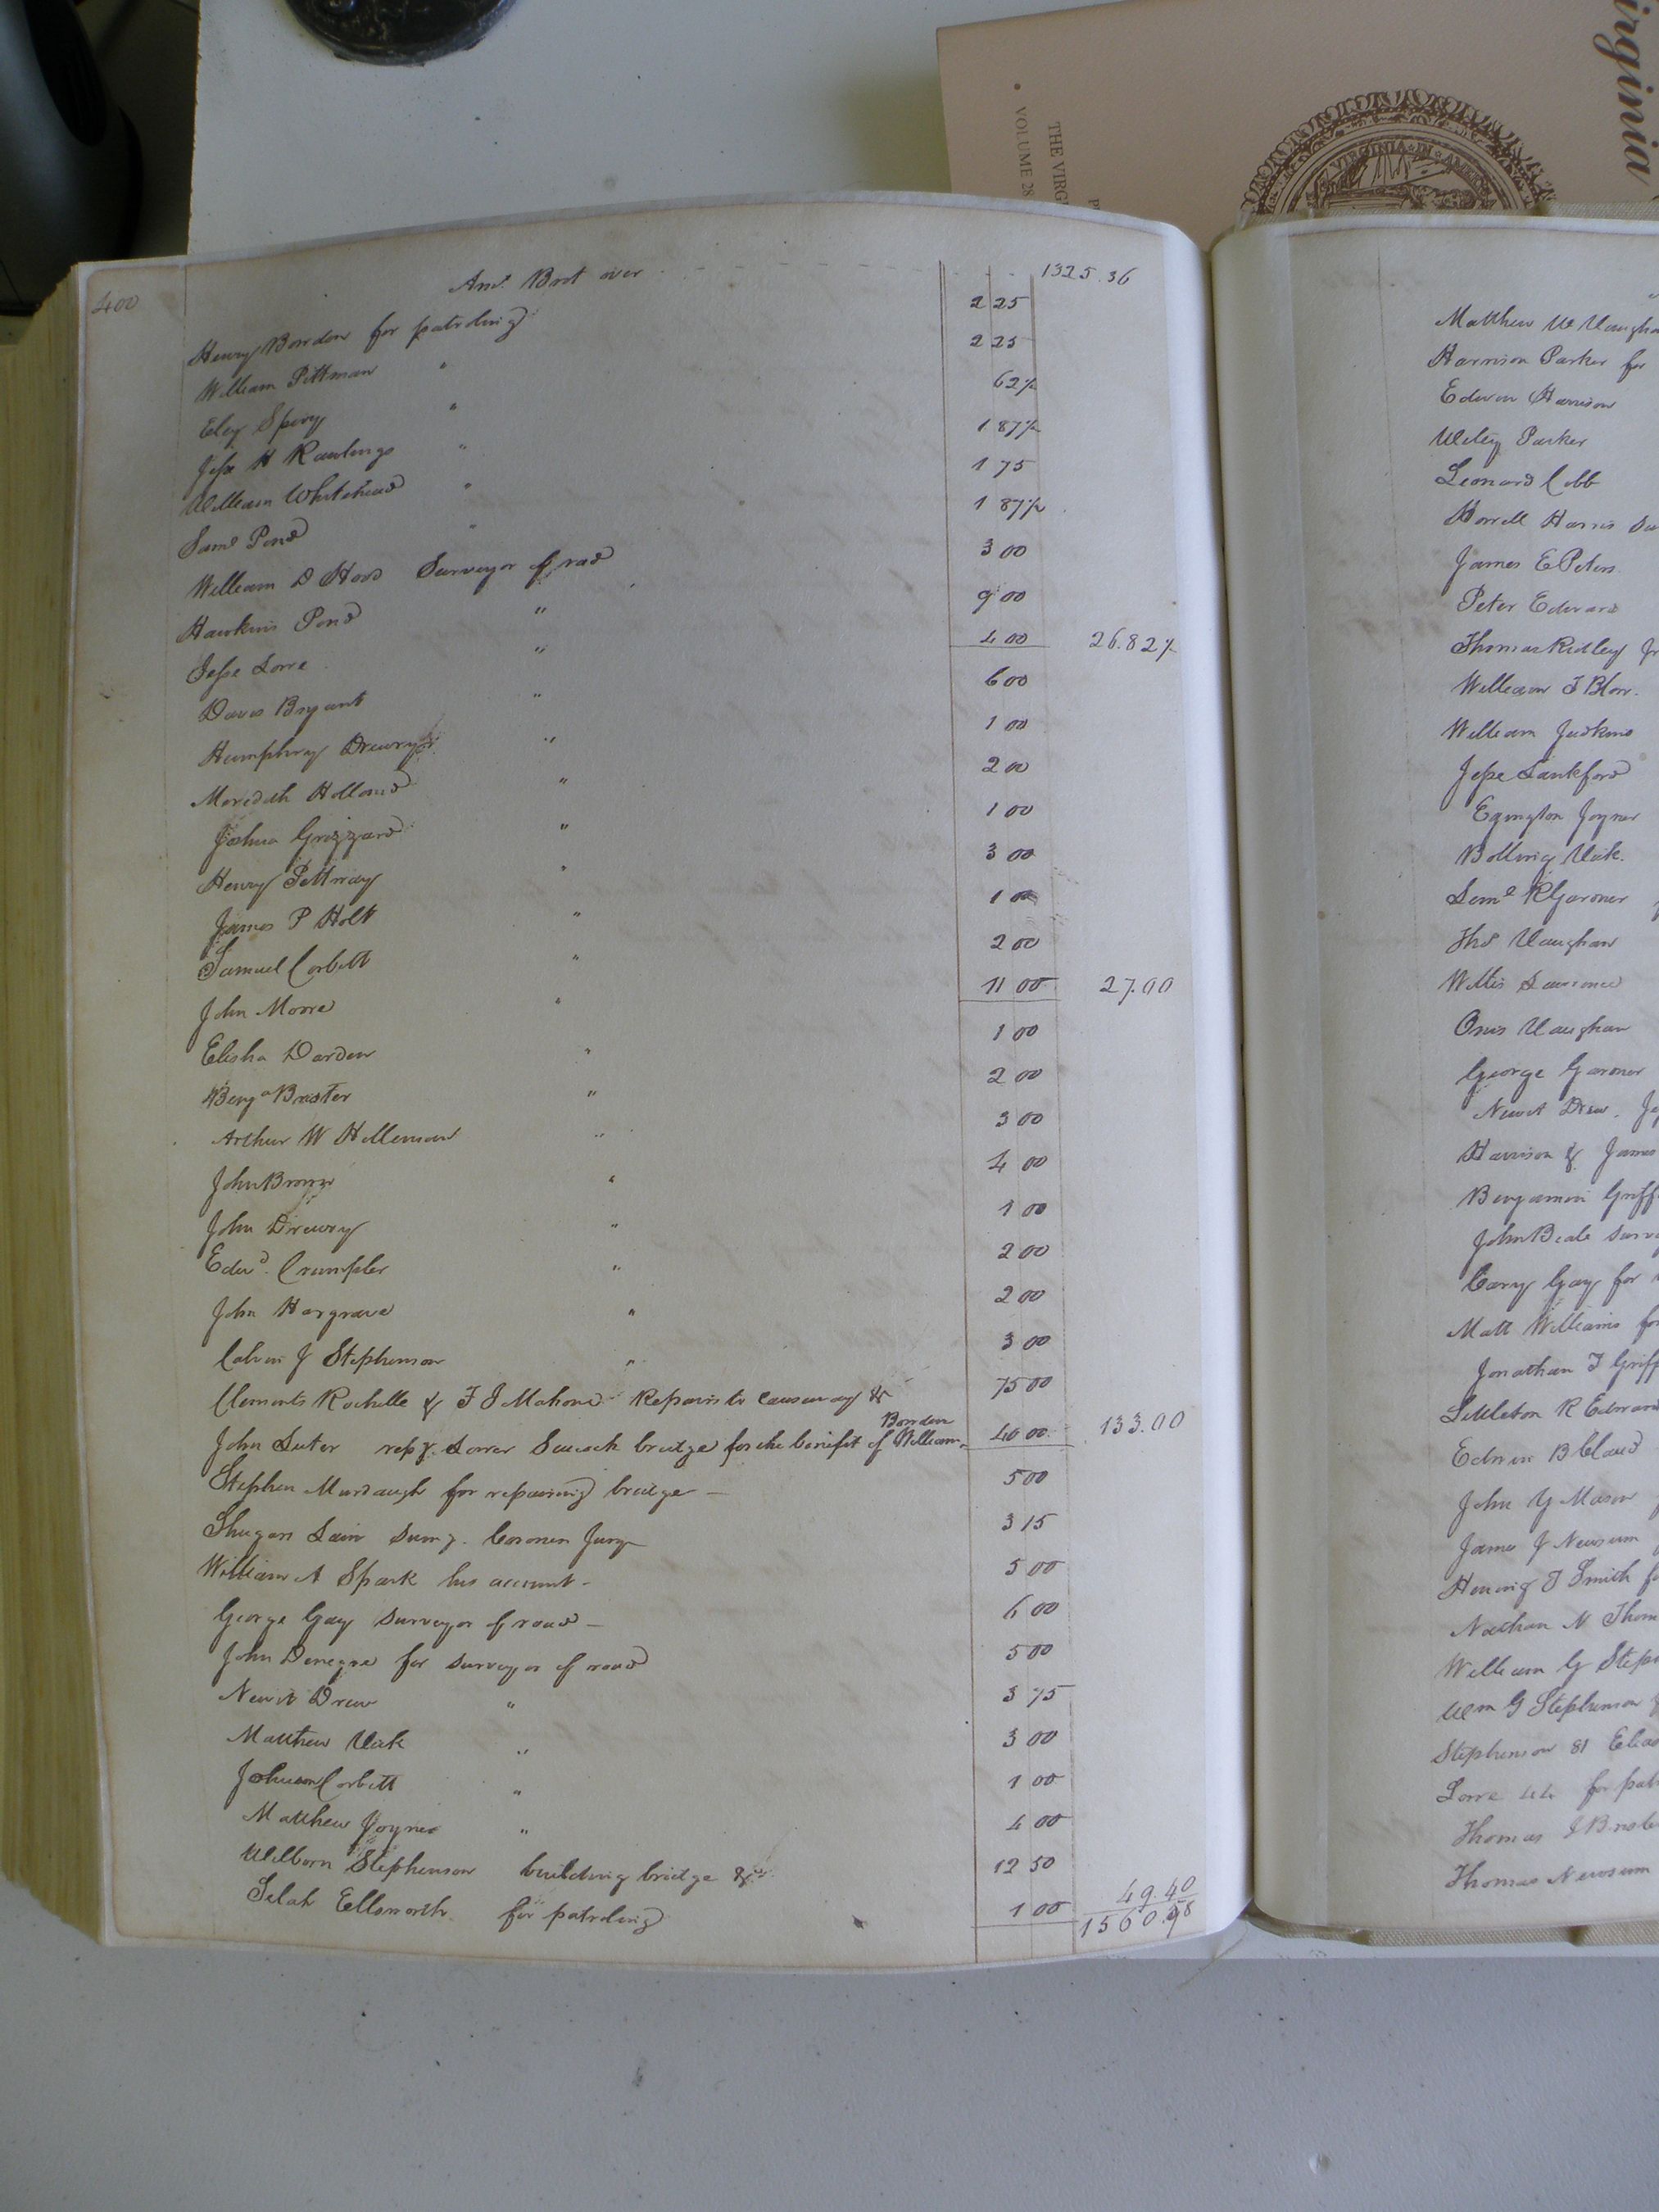 irginia
THE VIRG
VOLUME 28
VIRGINIA IN AME
400
Amt. Brot over 1325.36
Henry Bowden for patroling 2 25
William Pittman " 2 25
Eley Spivy " 62½
Jesse H Rawlings " 1 87½
William Whitehead " 1 75
Saml Pond " 1 87½
William D Hood Surveyor of road 3 00
Hawkins Pond " 9 00
Jesse Lowe " 4 00 26.82½
Davis Bryant " 6 00
Humphrey Drewry " 1 00
Meredith Holland " 2 00
Joshua Grizzard " 1 00
Henry Pettway " 3 00
James P Holt " 1 00
Samuel Corbitt " 2 00
John Moore " 11 00 27.00
Elisha Darden " 1 00
Benja Braster " 2 00
Arthur W Holleman " 3 00
John Brown " 4 00
John Drewry " 1 00
Edwd. Crumpler " 2 00
John Hargrave " 2 00
Calvin J Stephenson " 3 00
Clements Rochelle & F J Mahone Repairs to causeway & 75 00
John Suter repg. Lower Seacock bridge for the benefit of William Bowden 40 00 133.00
Stephen Murdaugh for repairing bridge — 5 00
Shugars Lain sumg. Coroners Jury 3 15
William A Spark his account - 5 00
George Gay surveyor of road — 6 00
John Denegre for surveyor of road 5 00
Newit Drew " 3 75
Matthew Vick " 3 00
Johnson Corbitt " 1 00
Matthew Joyner " 4 00
Wilborn Stephenson building bridge &c 12 50
Selah Ellsworth for patroling 1 00 49.40
1560.98
Matthew W Vaugha
Harrison Parker for
Edwin Harrison
Wiley Parker
Leonard Cobb
Howell Harris Su
James E Peters
Peter Edwards
Thomas Ridley Jr
William T Blow.
William Judkins
Jesse Lankford
Egington Joyner
Bolling Vick.
Leml R Gardner
Thos Vaughan
Willis Lawrence
Orris Vaughan
George Gardner
Newit Drew. Ja
Harrison & James
Benjamin Griff
John Beale surv
Cary Gay for
Matt Williams for
Jonathan T Griff
Littleton R Edward
Edwin B Claud
John Y Mason
James J Newsum
Hening T Smith fo
Nathan N Thom
William G Steph
Wm G Stephenson
Stephenson 81 Elias
Lowe 44 for patr
Thomas J Briste
Thomas Newsum